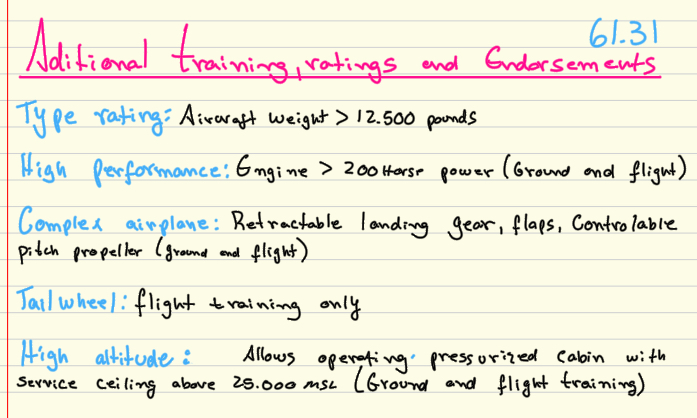 61.31
Aditional training, ratings and Endorsements
Type rating: Aircraft weight > 12.500 pounds
High performance: Engine > 200 Horse power (Ground and flight)
Complex airplane: Retractable landing gear, flaps, Controlable
pitch propeller (ground and flight)
Tailwheel: flight training only
High altitude: Allows operating pressurized cabin with
service ceiling above 25.000 MSL (Ground and flight training)